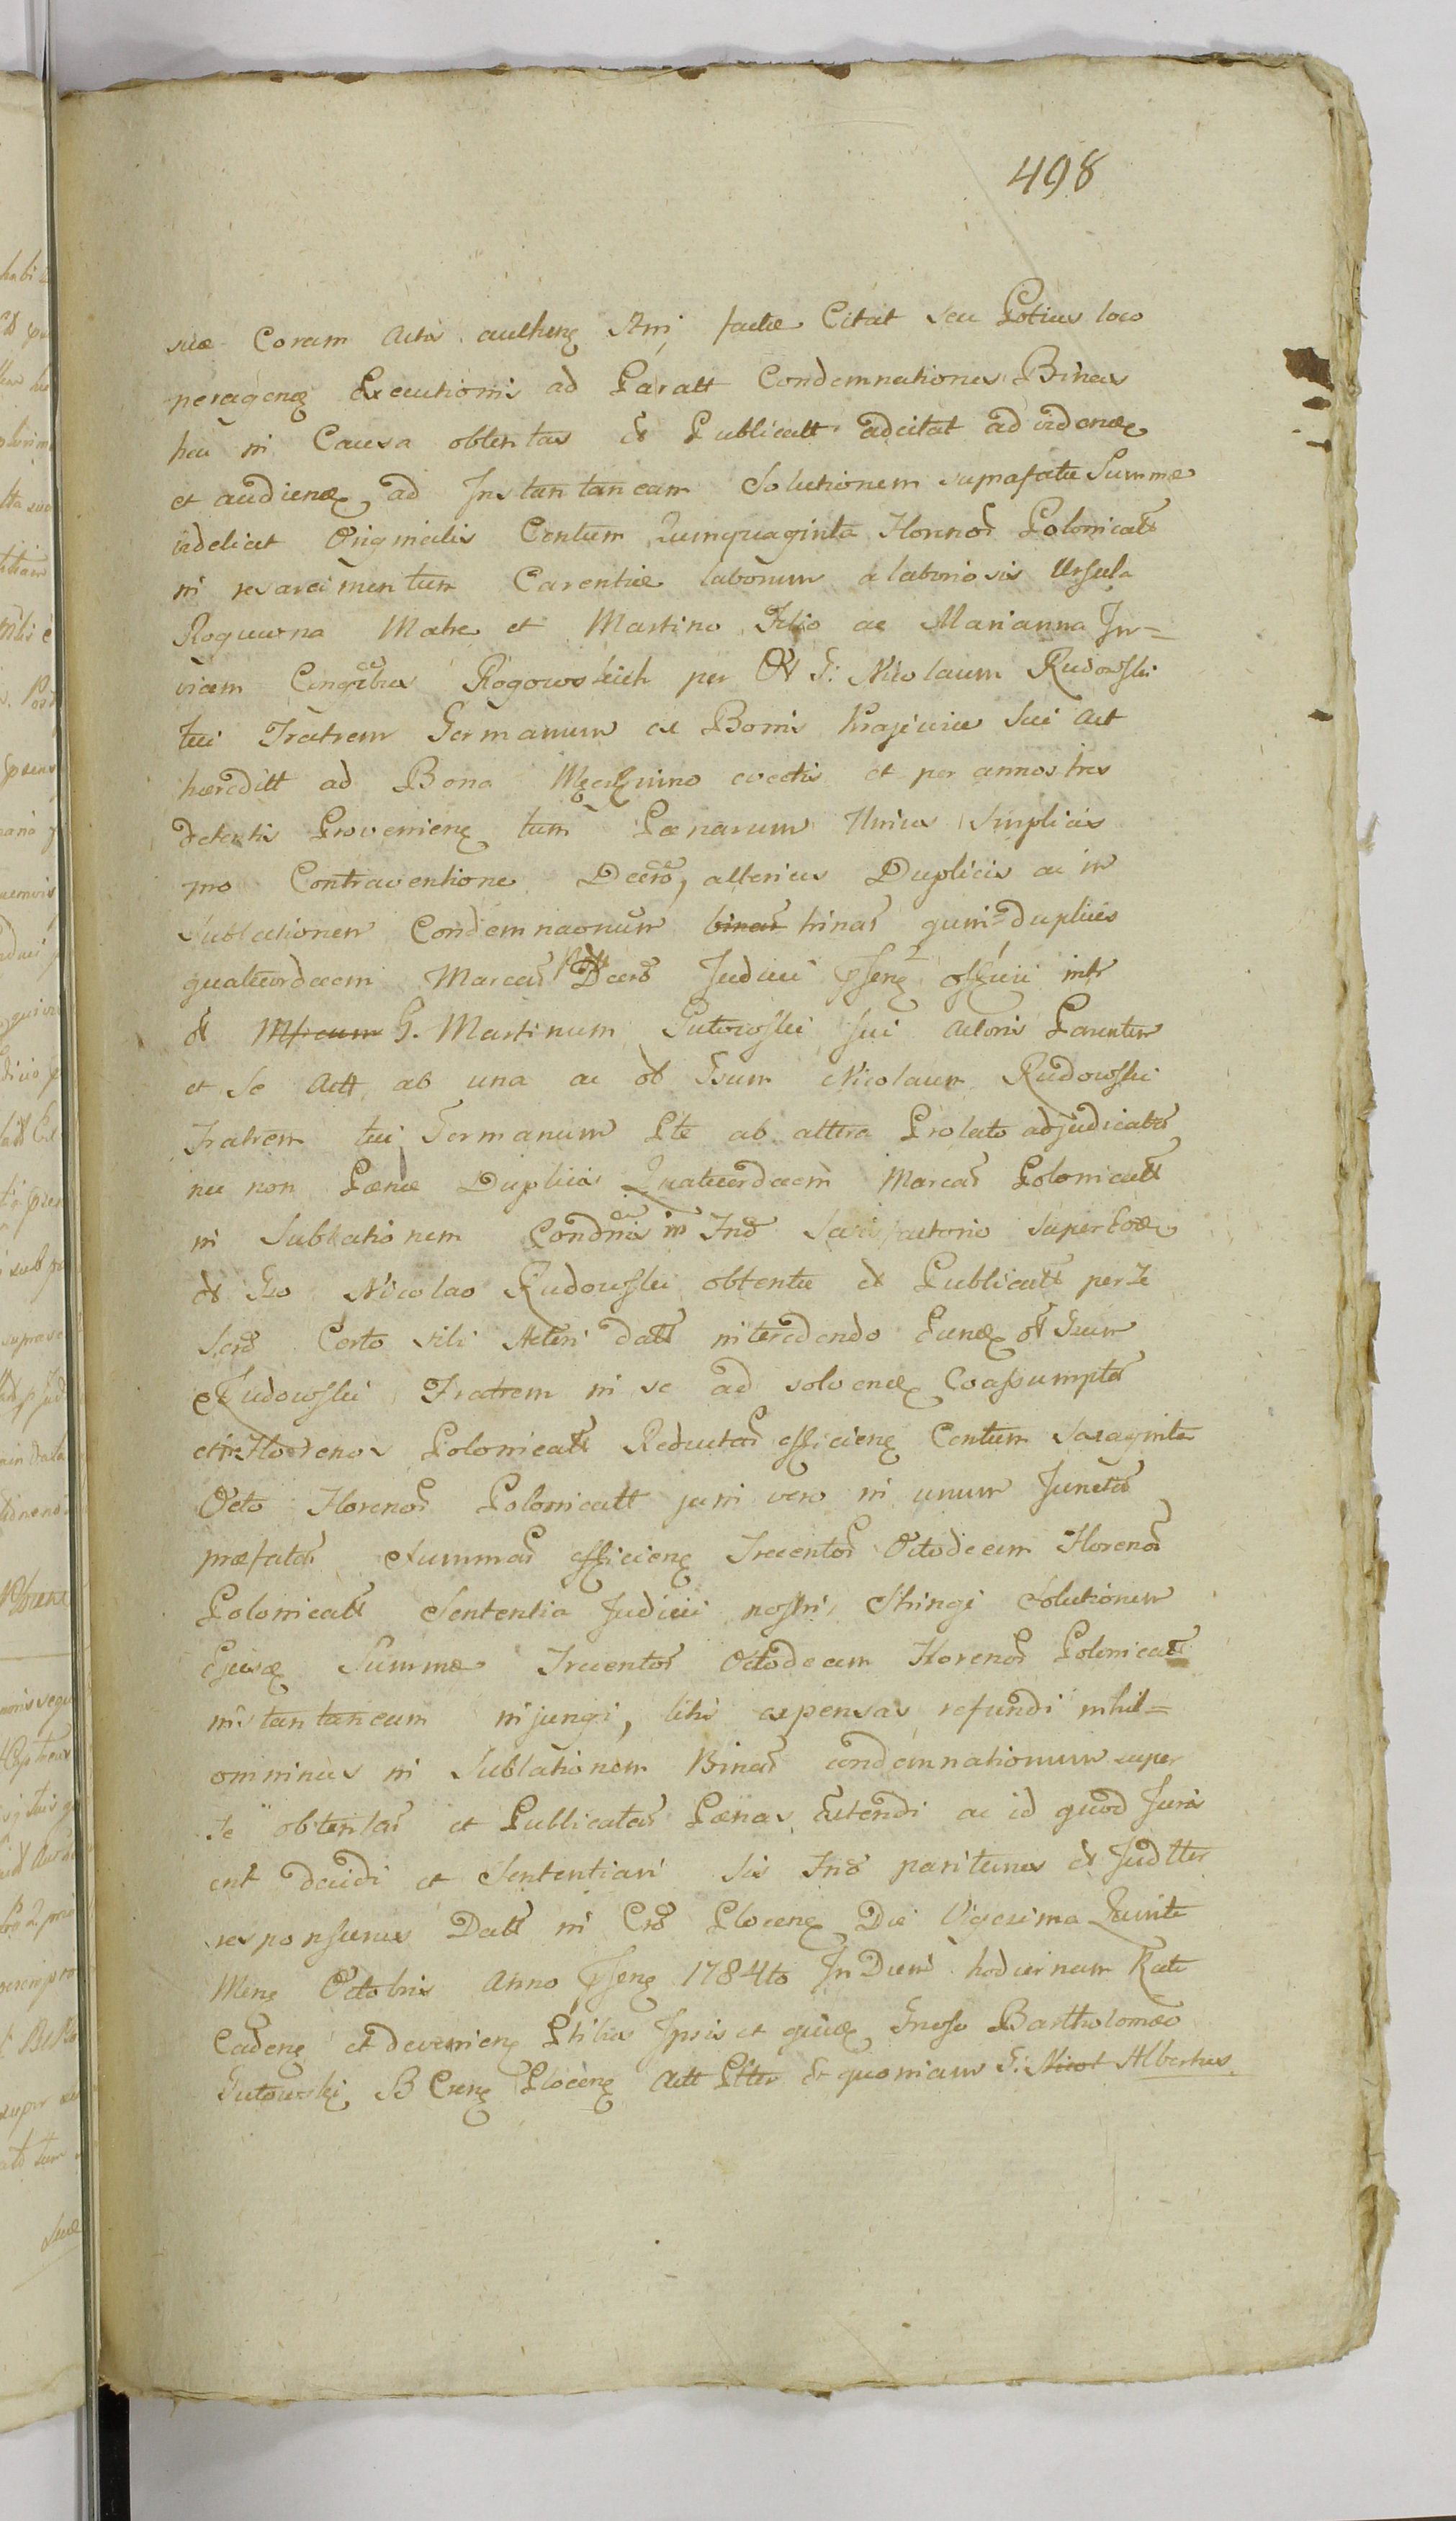 498
suæ Coram Actis authenz factæ Citat seu Potius loco
peragenz Executionis ad Paratt Condemnationes Binas
hac in Causa obtentas & Publicatt adcitat ad videndz
et audienz ad Instantaneam Solutionem suprafatæ Summæ
videlicet Originalis Centum Quinquaginta Florenor Polonicatt
in resarcimentum Carentiæ laborum a laboriosis Ursula
Roguwna Matre et Martino Filio ac Marianna In=
vicem Congtibus Rogowskich per G: Nicolaum Rudowski
tui Fratrem Germanum ex Bonis Krajewice Sui Act
hæreditt ad Bona evectis et per annos tres
detentis Provenienz tum Pænarum Unius Simplicis
pro Contraventione Decro, alterius Duplicis ac in
Sublationem Condemnaonum binar trinar quin duplices
quatuordecim Marcar Decro Judicii Psenz officii intr
& G. Martinum Gutowski sui Actoris Parentem
et se Actt ab una ac Gsum Nicolaum Rudowski
Fratrem tui Germanum Pte ab altera Prolato adjudicatar
nec non Pænæ Duplicis Quatuordecim Marcar Polonicatt
in Sublationem Condnis in Tno Satisfactorio super
Gso Nicolao Rudowski obtentæ & Publicatt per Te
Scro Certo sibi Acteri datt intercedendo Gsum
Rudowski Fratrem in se ad solvenz Coassumptar
et in Florenos Polonicatt Reductar efficienz Centum Sexaginta
Octo Florenor Polonicatt jam vero in unum Junctar
præfatar Summar efficienz Trecentor Octodecim Florenor
Polonicatt Sententia Judicii nostri Stringi Solutionem
Ejusdz Summæ Trecentor Octodecim Florenor Polonicatt
instantaneam injungi, litis expensas refundi nihil=
ominus in Sublationem Binar condemnationum super
Te obtentar et Publicatar Pænas Extendi ac id quod Juris
erit decidi et Sententiari Sis Tno pariturus & Judtter
responsurus Datt in Cro Plocenz Die Vigesima Quinta
Menz Octobris Anno Psenz 1784to In Diem hodiernam Rate
Cadenz et devenienz Ptibus Ipsis et quidz Gnoso Bartholomæo
Gutowski B Crenz Plocenz Actt Ptter & quoniam G: Nicol Albertus